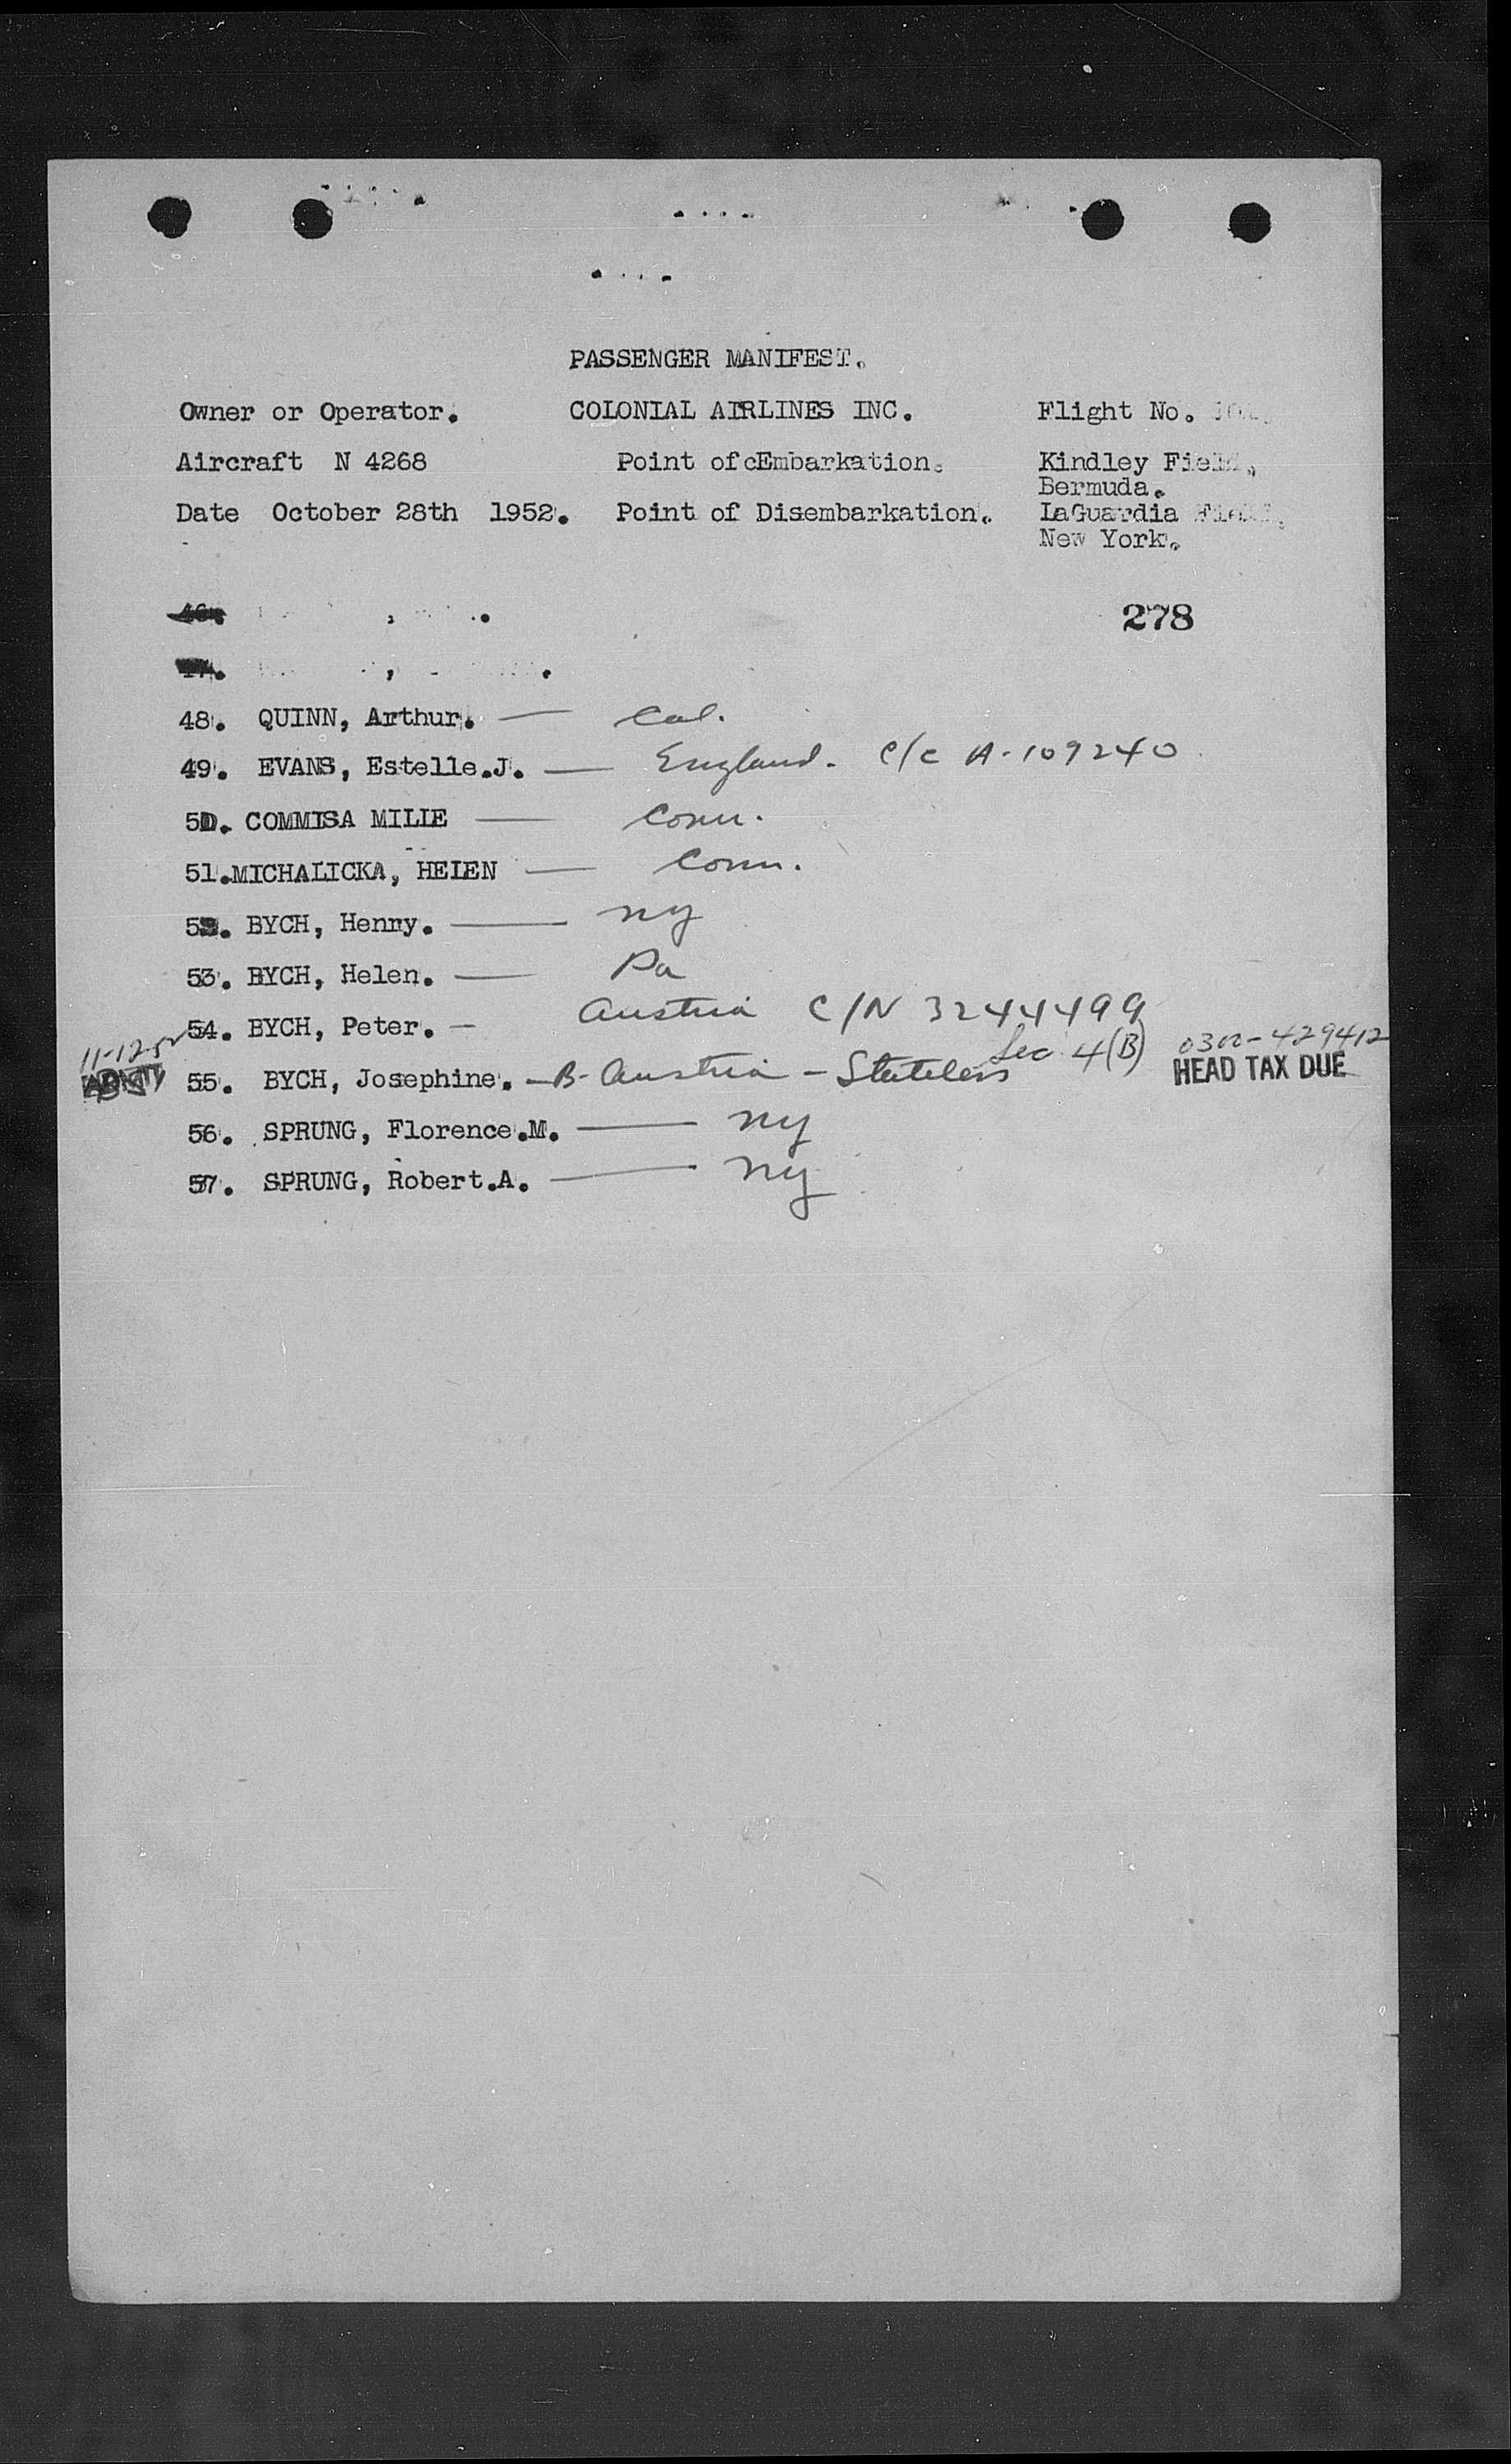 PASSENGER MANIFEST.
Owner or Operator. COLONIAL AIRLINES INC. Flight No.
Aircraft N 4268 Point of cEmbarkation. Kindley Field,
Bermuda.
Date October 28th 1952. Point of Disembarkation. LaGuardia Field,
New York.
278
48. QUINN, Arthur. — Cal.
49. EVANS, Estelle.J. — England. C/C A-109240
50. COMMISA MILIE — Conn.
51.MICHALICKA, HELEN — Conn.
52. BYCH, Henry. — NY
53. BYCH, Helen. — Pa
54. BYCH, Peter. — Austria C/N 3244499
11-12-52 Sec 4(B) 0300-429412
55. BYCH, Josephine. — B- Austria - Stateless HEAD TAX DUE
56. SPRUNG, Florence.M. — NY
57. SPRUNG, Robert.A. — NY